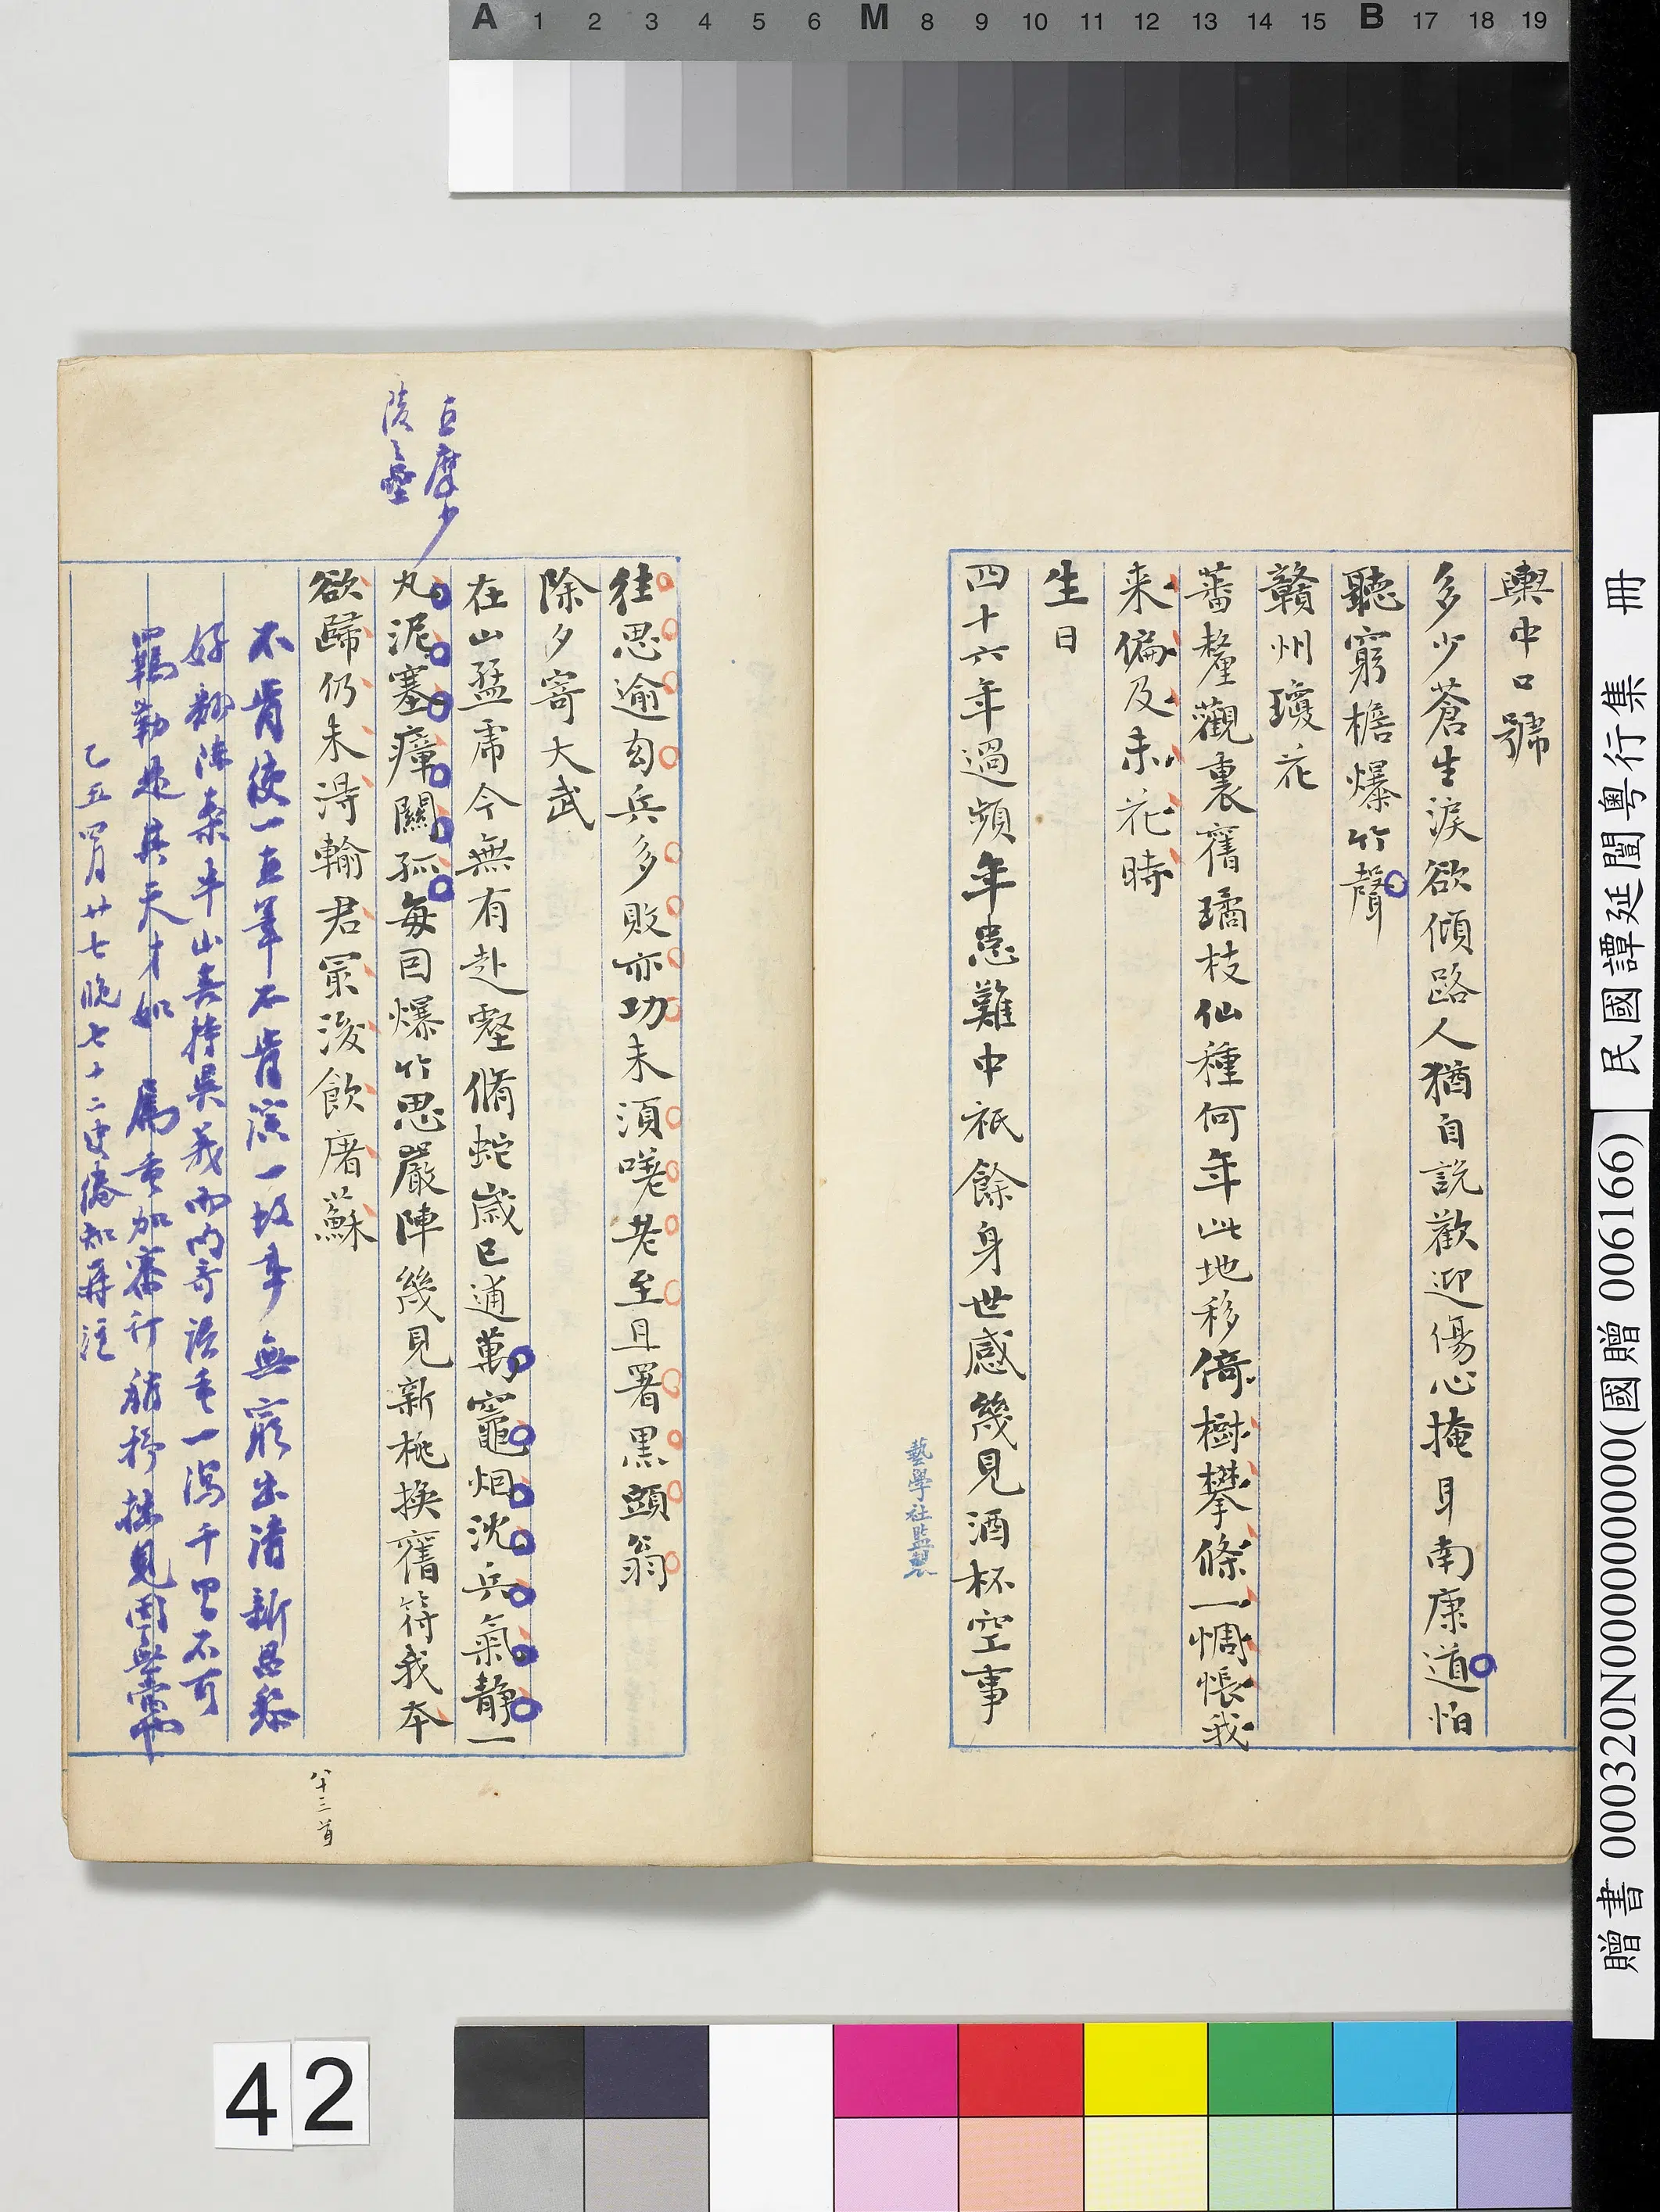 A 1 2 3 4 5 6 M 8 9 10 11 12 13 14 15 B 17 18 19
輿中口號
多少蒼生淚欲傾路人猶自說歡迎傷心掩耳南康道怕
聽窮檐爆竹聲
贛州瓊花
蕃釐觀裏舊璚枝仙種何年此地移倚樹攀條一惆悵我
来偏及未花時
生日
四十六年過頻年患難中祇餘身世感幾見酒杯空事
藝學社監製
往思逾勾兵多敗亦功未須嗟老至且署黑頭翁
除夕寄大武
在山猛虎今無有赴壑脩蛇歲已逋萬竈烟沈兵氣靜一
丸泥塞瘴關孤每因爆竹思嚴陣幾見新桃換舊符我本
欲歸仍未得輸君最後飲屠蘇
直摩少
陵之壘
不肯使一直筆不肯演一故事無窮出清新呂黎
好翻陳案半山喜持異義而內奇語重一瀉千里不可
羈勒是其天才如 屬重加審訂
乙丑四月廿七晚七十二叟
八十三首
民國譚延闓粵行集 冊
贈書 000320N000000000(國贈 006166)
42